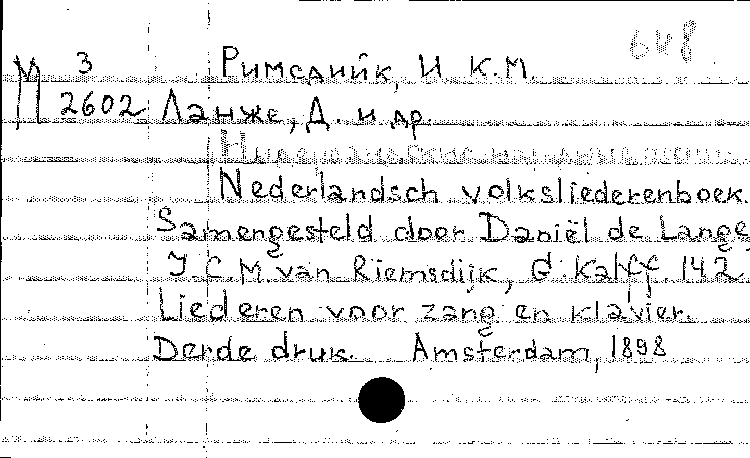 648
М 3 Римсдийк, И К.М.
2602 Ланже, Д. и др.
Нидерландские народные песни
Nederlandsch volksliederenboek.
Samengesteld door Daniël de Lange,
J C M van Riemsdijk, G. Kalff. 142
Liederen voor zang en klavier.
Derde druk. Amsterdam, 1898